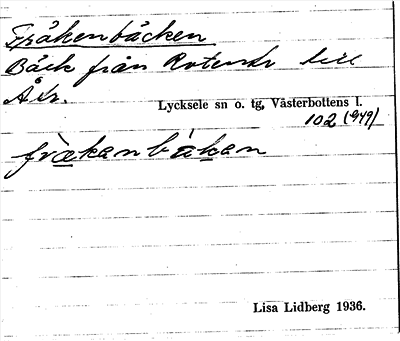 Fräkenbäcken
Bäck från Rotentr till
Åtr.
Lycksele sn o. tg, Västerbottens l.
102 (949)
frækanbäkan
Lisa Lidberg 1936.